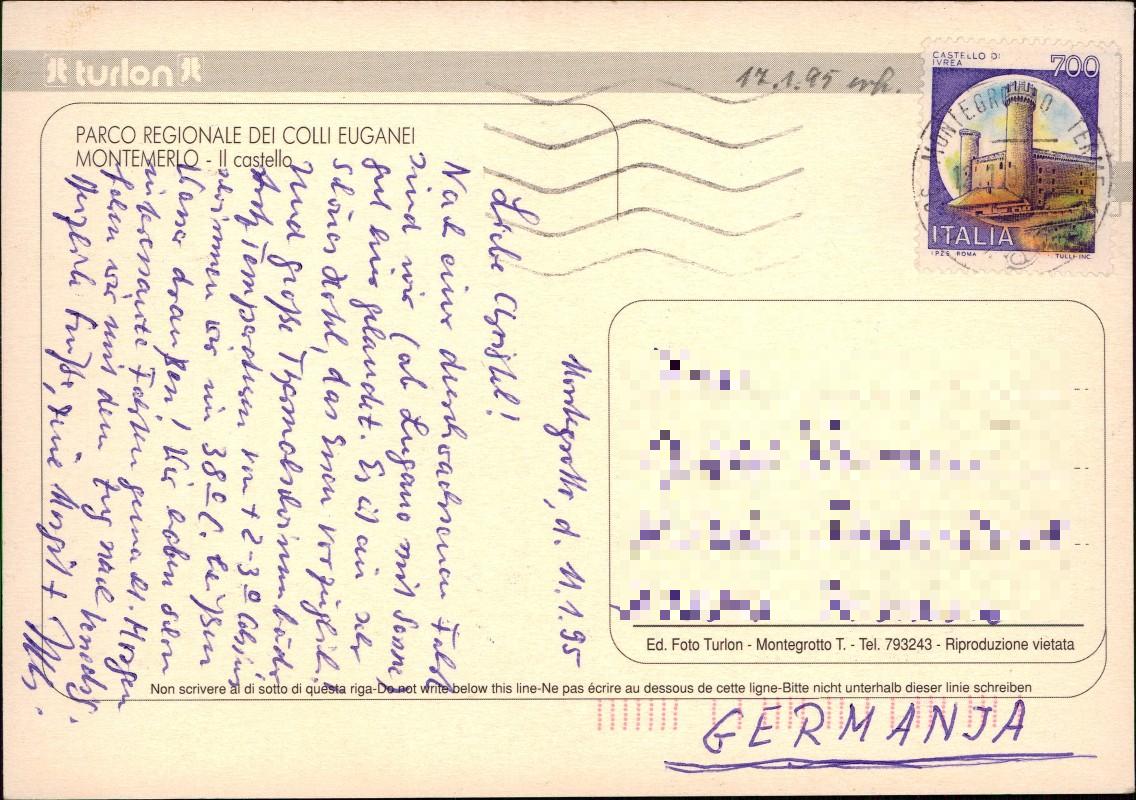 turlon
17.1.95 erh.
CASTELLO DI
IVREA
700
MONTEGROTTO TERME
ITALIA
I.P.Z.S. ROMA
TULLI INC.
PARCO REGIONALE DEI COLLI EUGANEI
MONTEMERLO - Il castello
Montegrotto, d. 11.1.95
Liebe Christel!
Nach einer durchwachsenen Fahrt
sind wir (ab Lugano mit Sonne)
gut hier gelandet. Es ist ein sehr
schönes Hotel, das Essen vorzüglich
und große Thermalschwimmbäder.
Trotz Temperaturen von + 2-3° Celsius
schwimmen wir im 38° C. heißen
Wasser draußen! Wir haben schon
interessante Fahrten gemacht. Morgen
fahren wir mit dem Zug nach Venedig.
Herzliche Grüße, Deine Margit +
Ed. Foto Turlon - Montegrotto T. - Tel. 793243 - Riproduzione vietata
Non scrivere al di sotto di questa riga-Do not write below this line-Ne pas écrire au dessous de cette ligne-Bitte nicht unterhalb dieser linie schreiben
GERMANIA